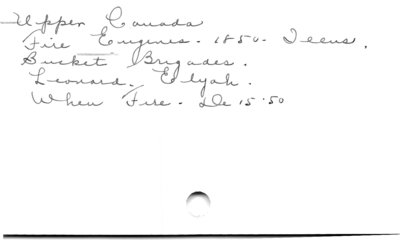 Upper Canada
Fire Engines. 1850. Teens.
Bucket Brigades.
Leonard. Elyah.
When Fire. De 15.50